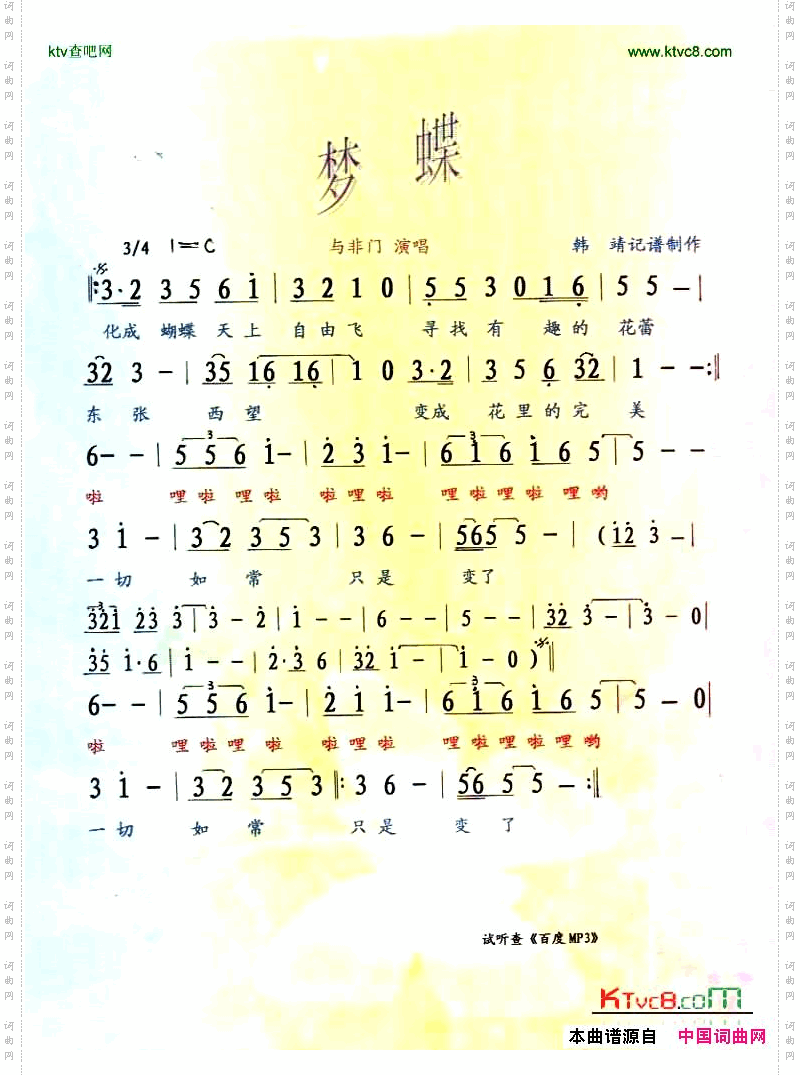 ktv查吧网 www.ktvc8.com
梦 蝶
3/4 1=C 与非门 演唱 韩 靖记谱制作
‖:3·2 3 5 6 i | 3 2 1 0 | 5 5 3 0 1 6 | 5 5 – |
化成 蝴蝶 天上 自由飞 寻找有 趣的 花蕾
32 3 – | 35 16 16 | 1 0 3·2 | 3 5 6 32 | 1 – –:‖
东 张 西望 变成 花里的完 美
6 – – | 5 5 6 i – | 2 3 i – | 6 i 6 i 6 5 | 5 – –
啦 哩啦 哩啦 啦哩啦 哩啦哩啦 哩哟
3 i – | 3 2 3 5 3 | 3 6 – | 565 5 – | (i2 3 – |
一切 如 常 只是 变了
32i 23 3 | 3 – 2 | i – – | 6 – – | 5 – – | 32 3 – | 3 – 0 |
35 i·6 | i – – | 2·3 6 | 32 i – | i – 0 )‖
6 – – | 5 5 6 i – | 2 i i – | 6 i 6 i 6 5 | 5 – 0 |
啦 哩啦哩 啦 啦哩啦 哩啦哩啦哩哟
3 i – | 3 2 3 5 3 ‖: 3 6 – | 56 5 5 – :‖
一切 如 常 只是 变 了
试听查《百度MP3》
KTvc8.com
本曲谱源自 中国词曲网
词曲网